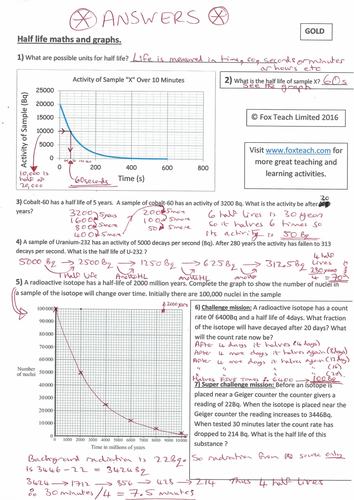 ANSWERS
GOLD
Half life maths and graphs.
1) What are possible units for half life? Life is measured in time, eg seconds or minutes
or hours etc
Activity of Sample "X" Over 10 Minutes
Activity of Sample (Bq)
25000
20000
15000
10000
5000
0
0 200 400 600 800
Time (s)
10,000 is
half of
20,000
60 seconds
2) What is the half life of sample X? 60s
See the graph
© Fox Teach Limited 2016
Visit www.foxteach.com for
more great teaching and
learning activities.
3) Cobalt-60 has a half life of 5 years. A sample of cobalt-60 has an activity of 3200 Bq. What is the activity be after 30
years?
3200
1600
800
400
200
100
50
6 half lives is 30 years
so it halves 6 times so
its activity is 50 Bq
4) A sample of Uranium-232 has an activity of 5000 decays per second (Bq). After 280 years the activity has fallen to 313
decays per second. What is the half life of U-232 ?
5000 Bq → 2500 Bq → 1250 Bq → 625 Bq → 312.5 Bq
1 half life
4 half
lives
280 years
5) A radioactive isotope has a half-life of 2000 million years. Complete the graph to show the number of nuclei in
a sample of the isotope will change over time. Initially there are 100,000 nuclei in the sample
Number
of nuclei
100000
90000
80000
70000
60000
50000
40000
30000
20000
10000
0
0 1000 2000 3000 4000 5000 6000 7000 8000 9000 10000
Time in millions of years
6) Challenge mission: A radioactive isotope has a count
rate Of 6400Bq and a half life of 4days. What fraction
of the isotope will have decayed after 20 days? What
will the count rate now be?
After 4 days it halves (4 days)
After 4 more days it halves again (8 days)
After 4 more days it halves again (12 days)
Halves five times
7) Super challenge mission: Before an isotope is
placed near a Geiger counter the counter gives a
reading of 22Bq. When the isotope is placed near the
Geiger counter the reading increases to 3446Bq.
When tested 30 minutes later the count rate has
dropped to 214 Bq. What is the half life of this
substance ?
Background radiation is 22Bq. So radiation from the source only
is 3446-22 = 3424Bq
3424 → 1712 → 856 → 428 → 214 Thus 4 half lives
so 30 minutes/4 = 7.5 minutes